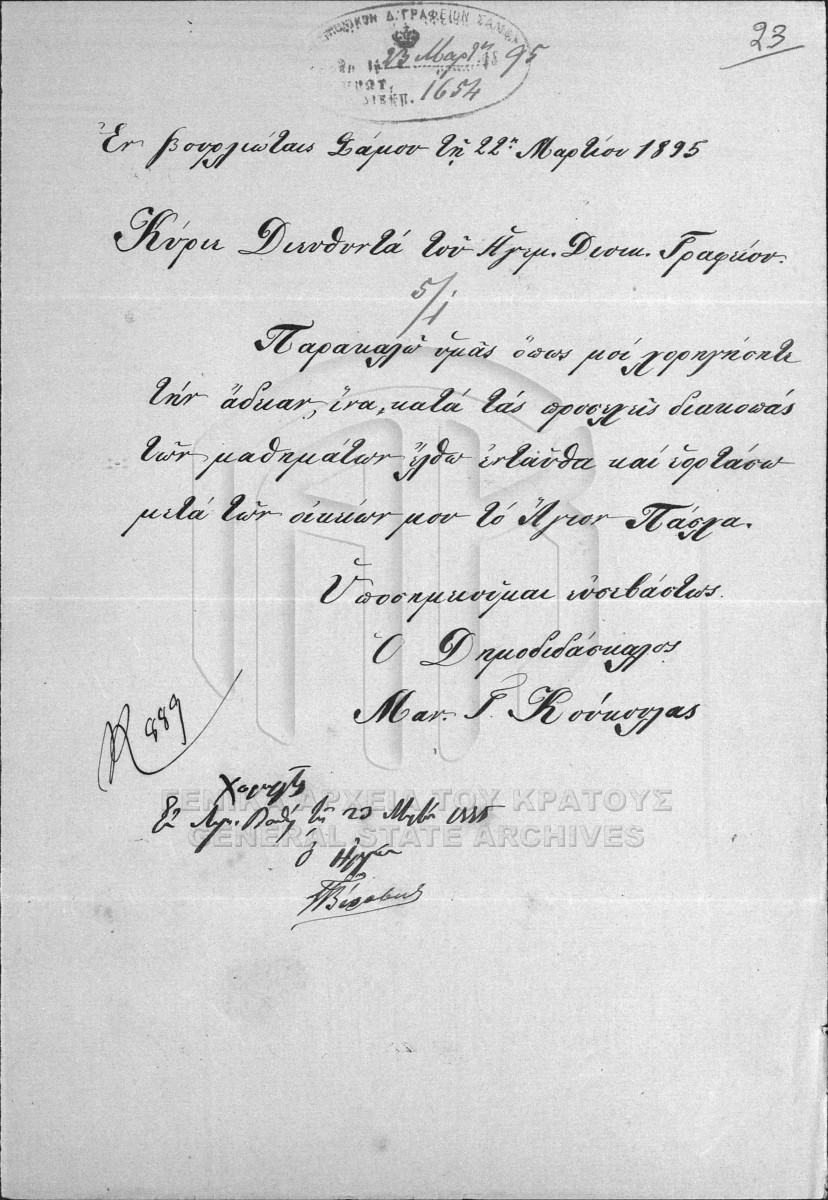 23
ΗΓΕΜΟΝΙΚΟΝ Δ. ΓΡΑΦΕΙΟΝ ΣΑΜΟΥ
23 Μαρτ. 95
ΠΡΩΤ.
ΔΙΕΚΠ. 1654
Ἐν Βουρλιώταις Σάμου τῇ 22ᾳ Μαρτίου 1895
Κύριε Διευθυντά τοῦ Ἡγεμ. Διοικ. Γραφείου.
5/1
Παρακαλῶ ὑμᾶς ὅπως μοί χορηγήσητε
τήν ἄδειαν, ἵνα, κατά τάς προσεχεῖς διακοπάς
τῶν μαθημάτων ἔλθω ἐνταῦθα καί ἑορτάσω
μετά τῶν οἰκείων μου τό Ἅγιον Πάσχα.
Ὑποσημειοῦμαι εὐσεβάστως.
Ὁ Δημοδιδάσκαλος
Μαν. Γ. Κούκουλας
889
ΓΕΝΙΚΑ ΑΡΧΕΙΑ ΤΟΥ ΚΡΑΤΟΥΣ
Ἐν Λιμ. Βαθέος τῇ 23 1895
GENERAL STATE ARCHIVES
Ὁ